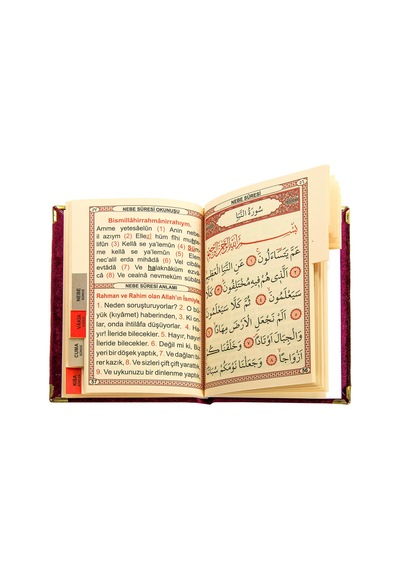 NEBE SÛRESİ OKUNUŞU
Bismillâhirrahmânirrahıym.
Amme yetesâelûn (1) Anin nebe-
il azıym (2) Ellezî hüm fîhi muhte-
lifûn (3) Kellâ se ya'lemûn (4) Süm-
me kellâ se ya'lemûn (5) Elem
nec'alil erda mihâdâ (6) Vel cibâle
evtâdâ (7) Ve halaknâküm ezvâ-
câ (8) Ve cealnâ nevmeküm sübâ-
NEBE SÛRESİ ANLAMI
Rahman ve Rahim olan Allah'ın İsmiyle
1. Neden soruşturuyorlar? 2. O bü-
yük (kıyâmet) haberinden. 3. Ki on-
lar, onda ihtilâfa düşüyorlar. 4. Ha-
yır! İleride bilecekler. 5. Hayır, hayır
ileride bilecekler. 6. Değil mi ki, Biz
yeri bir döşek yaptık, 7. Ve dağları bi-
rer kazık, 8. Ve sizleri çift çift yarattık,
9. Ve uykunuzu bir dinlenme yaptık,
NEBE
VAKIA
CUMA
NEBE SÛRESİ
سُورَةُ النَّبَأِ
عَمَّ يَتَسَاءَلُونَ ۞ عَنِ النَّبَإِ الْعَظِيمِ
الَّذِي هُمْ فِيهِ مُخْتَلِفُونَ ۞ كَلَّا
سَيَعْلَمُونَ ۞ ثُمَّ كَلَّا سَيَعْلَمُونَ
أَلَمْ نَجْعَلِ الْأَرْضَ مِهَادًا
وَالْجِبَالَ أَوْتَادًا ۞ وَخَلَقْنَاكُمْ
أَزْوَاجًا ۞ وَجَعَلْنَا نَوْمَكُمْ سُبَاتًا